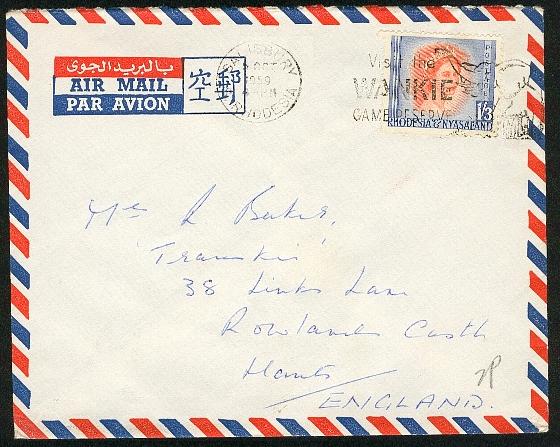 بالبريد الجوى
AIR MAIL
PAR AVION
空郵
SALISBURY
OCT
1959
RHODESIA
Visit the
WANKIE
GAME RESERVE
POSTAGE
1/3
RHODESIA & NYASALAND
R Baker,
'Transkei'
38 Links Lane
Rowlands Castle
Hants
ENGLAND.